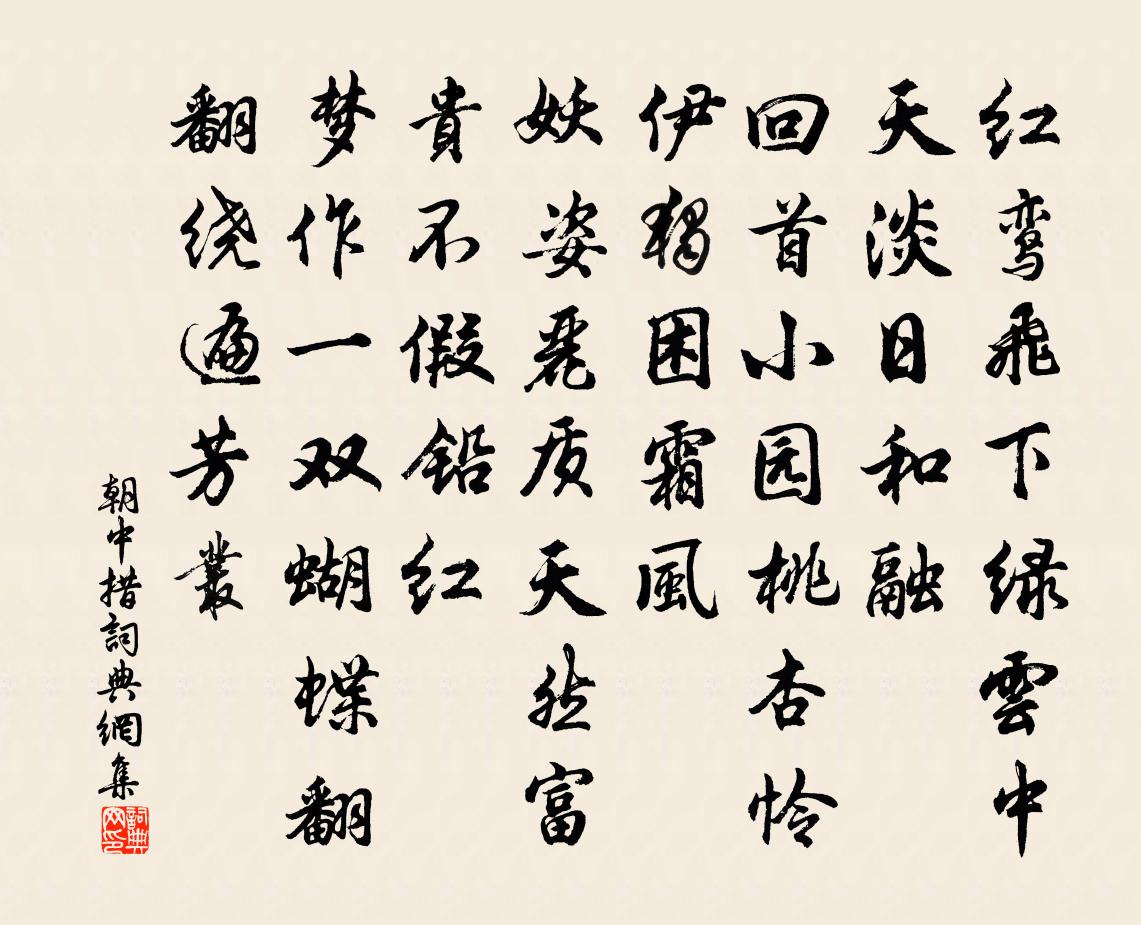 红鸾飛下绿雲中
天淡日和融
回首小园桃杏怜
伊獨困霜風
妖姿麗质天然富
貴不假铅红
梦作一双蝴蝶翻
翻绕遍芳叢
朝中措詞典網集
詞典网印